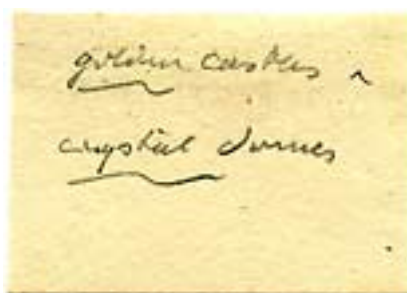 golden castles
crystal domes